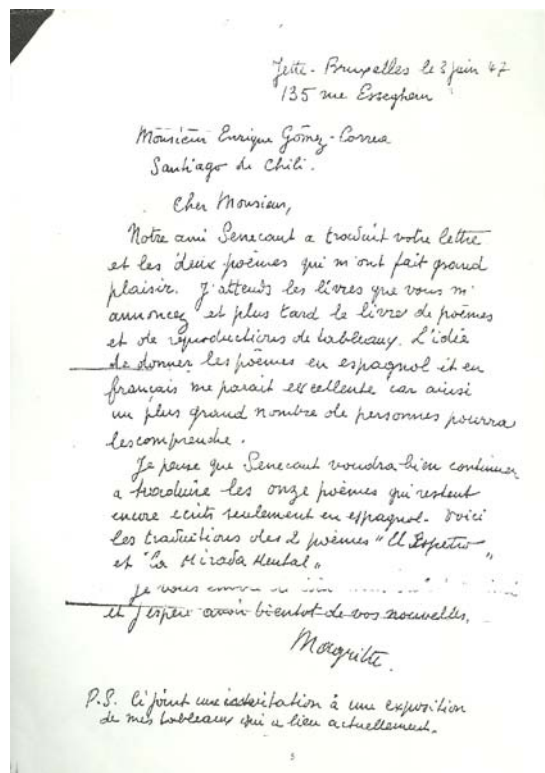 Jette - Bruxelles le 3 juin 47
135 rue Esseghem
Monsieur Enrique Gómez-Correa
Santiago de Chili.
Cher Monsieur,
Notre ami Senecaut a traduit votre lettre
et les deux poèmes qui m'ont fait grand
plaisir. J'attends les livres que vous m'
annoncez et plus tard le livre de poèmes
et de reproductions de tableaux. L'idée
de donner les poèmes en espagnol et en
français me parait excellente car ainsi
un plus grand nombre de personnes pourra
les comprendre.
Je pense que Senecaut voudra bien continuer
a traduire les onze poèmes qui restent
encore ecrits seulement en espagnol. Voici
les traductions des 2 poèmes "El Espectro"
et "La Mirada Mental"
Je vous
et j'espère avoir bientot de vos nouvelles.
Magritte.
P.S. Ci joint une invitation à une exposition
de mes tableaux qui a lieu actuellement.
5